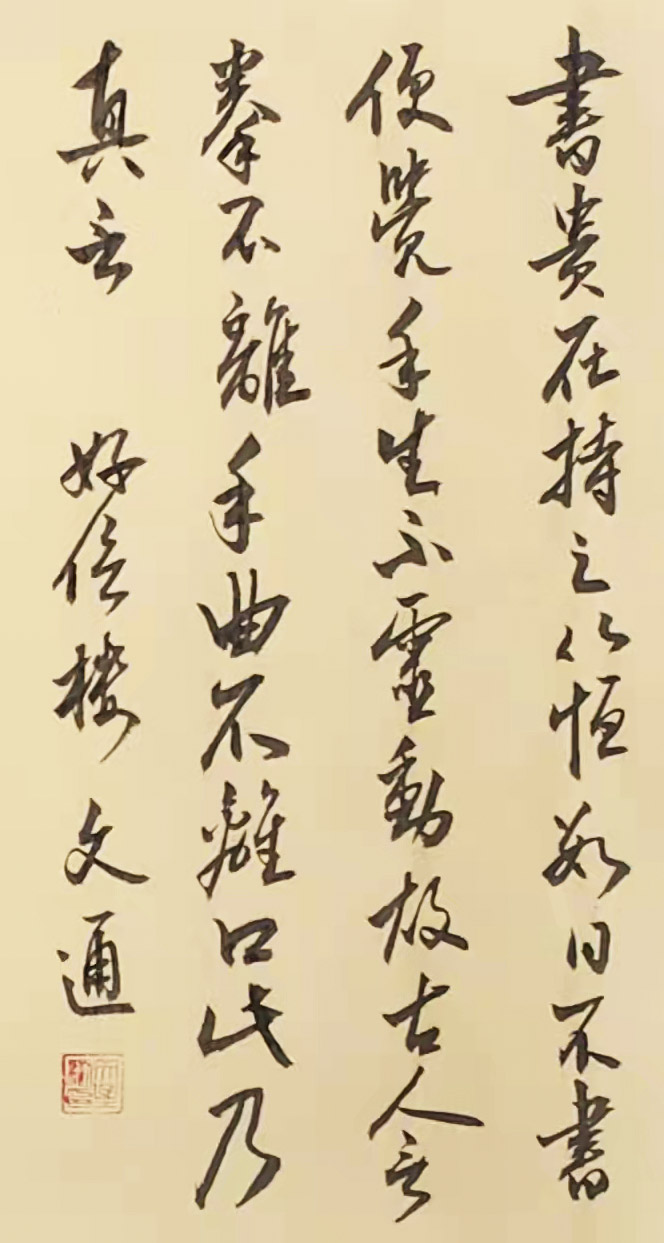 書貴在持之以恒數日不書
便覺手生不靈動故古人言
拳不離手曲不離口此乃
真言 好信樓 文通